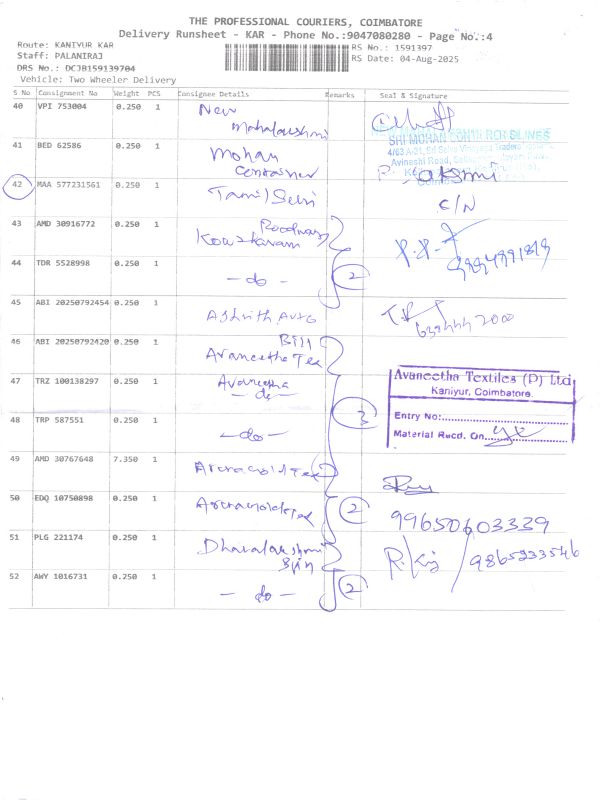 THE PROFESSIONAL COURIERS, COIMBATORE
Delivery Runsheet - KAR - Phone No.:9047080280 - Page No.:4
Route: KANIYUR KAR
RS No.: 1591397
Staff: PALANIRAJ
RS Date: 04-Aug-2025
DRS No.: DCJB159139704
Vehicle: Two Wheeler Delivery
S No Consignment No Weight PCS Consignee Details Remarks Seal & Signature
40 VPI 753004 0.250 1 New
Mahalakshmi
SRI MOHAN
41 BED 62586 0.250 1 Mohan
Container
Avineshi Road,
42 MAA 577231561 0.250 1 Tamil Selvi
C/N
43 AMD 30916772 0.250 1 Roadways
Kowstavam
44 TDR 5528998 0.250 1 - do - 2
45 ABI 20250792454 0.250 1 Ashrith Auto
46 ABI 20250792420 0.250 1 Bill
Avaneetha Tex
47 TRZ 100138297 0.250 1 Avaneetha
- do -
Avaneetha Textiles (P) Ltd
Kaniyur, Coimbatore.
Entry No:
Material Recd. On
48 TRP 587551 0.250 1 - do - 3
49 AMD 30767648 7.350 1
50 EDQ 10750898 0.250 1 2
99650603339
51 PLG 221174 0.250 1 Dhanalakshmi
9865333546
52 AWY 1016731 0.250 1 - do - 2